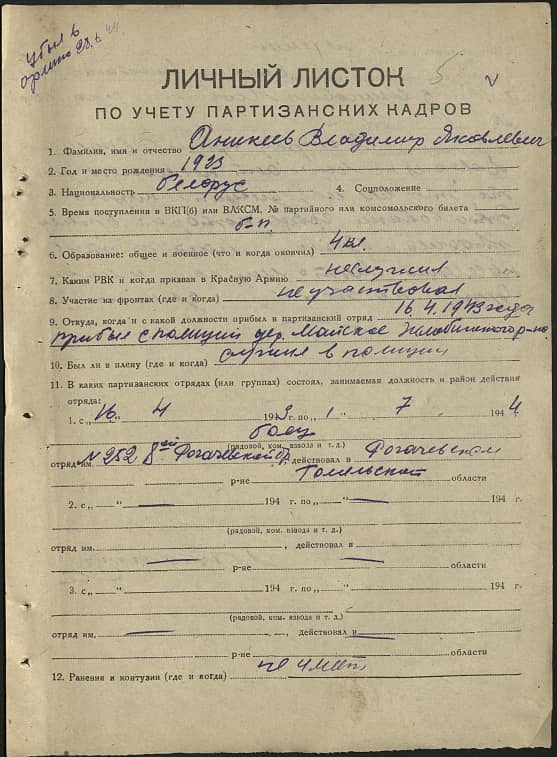 убыл в
армию 28.6.44
5
ЛИЧНЫЙ ЛИСТОК
ПО УЧЕТУ ПАРТИЗАНСКИХ КАДРОВ
1. Фамилия, имя и отчество Аникеев Владимир Яковлевич
2. Год и место рождения 1923
3. Национальность белорус 4. Соцположение
5. Время поступления в ВКП(б) или ВЛКСМ, № партийного или комсомольского билета
б-п.
6. Образование: общее и военное (что и когда окончил) 4 кл.
7. Каким РВК и когда призван в Красную Армию не служил
8. Участие на фронтах (где и когда) не участвовал
9. Откуда, когда и с какой должности прибыл в партизанский отряд 16.4.1943 года
прибыл с полиции дер. Майское Жлобинского р-на
10. Был ли в плену (где и когда) служил в полиции
11. В каких партизанских отрядах (или группах) состоял, занимаемая должность и район действия
отряда:
1. с „16 “ 4 1943 г. по „ 1 “ 7 1944
боец
(рядовой, ком. взвода и т. д.)
отряд им. № 252 8ой Рогачевской бр. действовал в Рогачевском
р-не Гомельской области
2. с „ “ 194 г. по „ “ 194 г.
(рядовой, ком. взвода и т. д.)
отряд им. , действовал в
р-не области
3. с „ “ 194 г. по „ “ 194 г.
(рядовой, ком. взвода и т. д.)
отряд им. , действовал в
р-не области
12. Ранения и контузии (где и когда) не имат